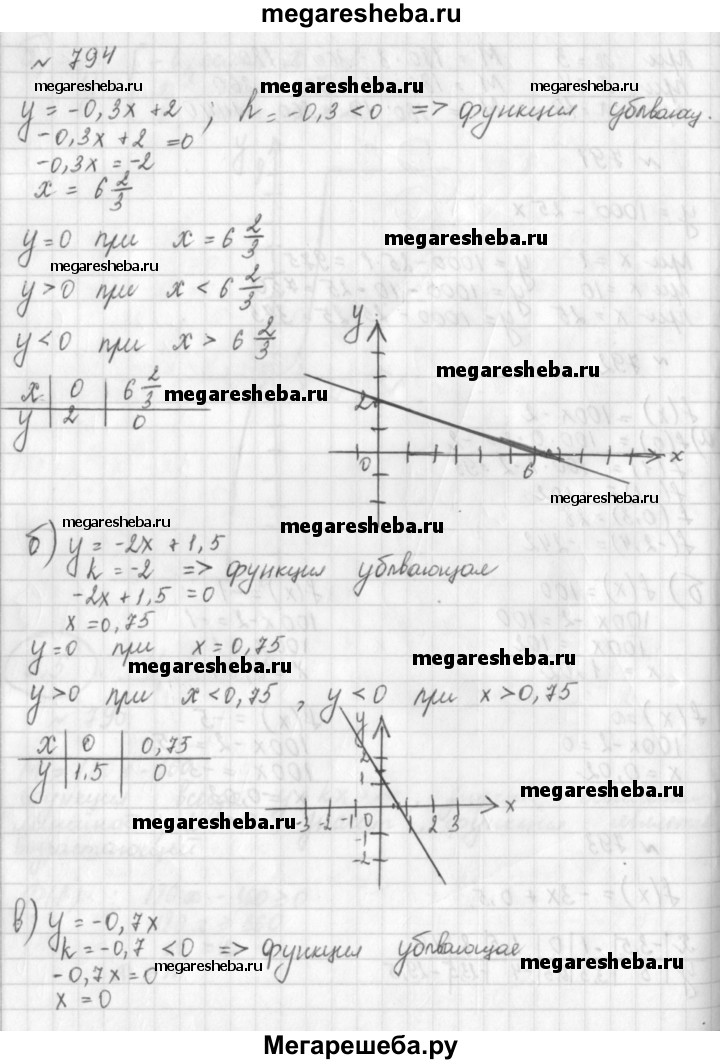 megaresheba.ru
№ 794
megaresheba.ru megaresheba.ru megaresheba.ru
y = -0,3x + 2 ; k = -0,3 < 0 => функция убывающ.
-0,3x + 2 = 0
-0,3x = -2
x = 6 2/3
y = 0 при x = 6 2/3
megaresheba.ru
megaresheba.ru
y > 0 при x < 6 2/3
y < 0 при x > 6 2/3
y
megaresheba.ru
x 0 6 2/3
megaresheba.ru
y 2 0
2
0 6 x
megaresheba.ru
megaresheba.ru
megaresheba.ru
б) y = -2x + 1,5
k = -2 => функция убывающая
-2x + 1,5 = 0
x = 0,75
y = 0 при x = 0,75
megaresheba.ru
megaresheba.ru
y > 0 при x < 0,75 , y < 0 при x > 0,75
y
x 0 0,75
y 1,5 0
2
1
megaresheba.ru
-3 -2 -1 0 1 2 3 x
megaresheba.ru
-1
-2
в) y = -0,7x
k = -0,7 < 0 => функция убывающая
-0,7x = 0
megaresheba.ru
megaresheba.ru
x = 0
Мегарешеба.ру